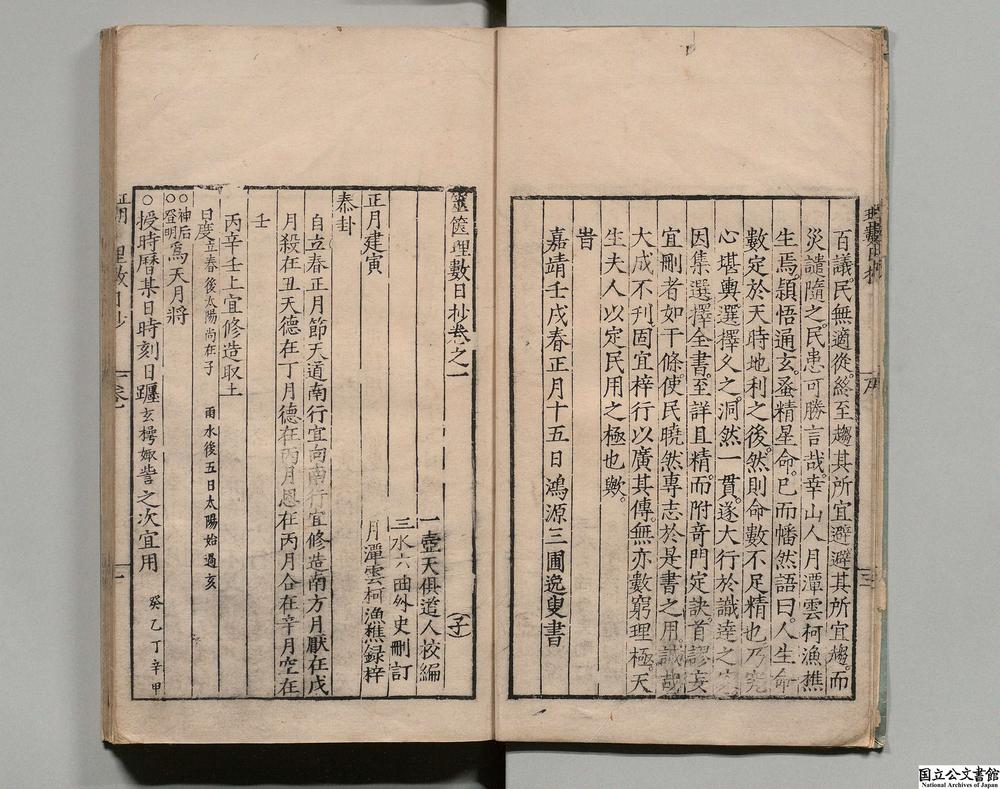 百議民無適從終至趨其所宜避避其所宜趨而
災譴隨之民患可勝言哉幸山人月潭雲柯漁樵
生焉頴悟通玄蚤精星命已而幡然語曰人生命
數定於天時地利之後然則命數不足精也乃究
心堪輿選擇久之洞然一貫遂大行於識達之
因集選擇全書至詳且精而附竒門定訣首謬妄
宜刪者如干條使民曉然專志於是書之用誠哉
大成不刋固宜梓行以廣其傳無亦數窮理極天
生夫人以定民用之極也歟
旹
嘉靖壬戌春正月十五日鴻源三圃逸叟書
理數日抄卷之一
一壺天俱道人校編
三水六曲外史刪訂
月潭雲柯漁樵録梓
子
正月建寅
泰卦
自立春正月節天道南行宜向南行宜修造南方月厭在戌
月殺在丑天德在丁月德在丙月恩在丙月合在辛月空在
壬
丙辛壬上宜修造取土
日度立春後太陽尚在子 雨水後五日太陽始過亥
○神后
○登明
為天月將
○授時曆某日時刻日躔玄枵娵訾之次宜用 癸乙丁辛甲
理數日抄
卷一
一
国立公文書館
National Archives of Japan